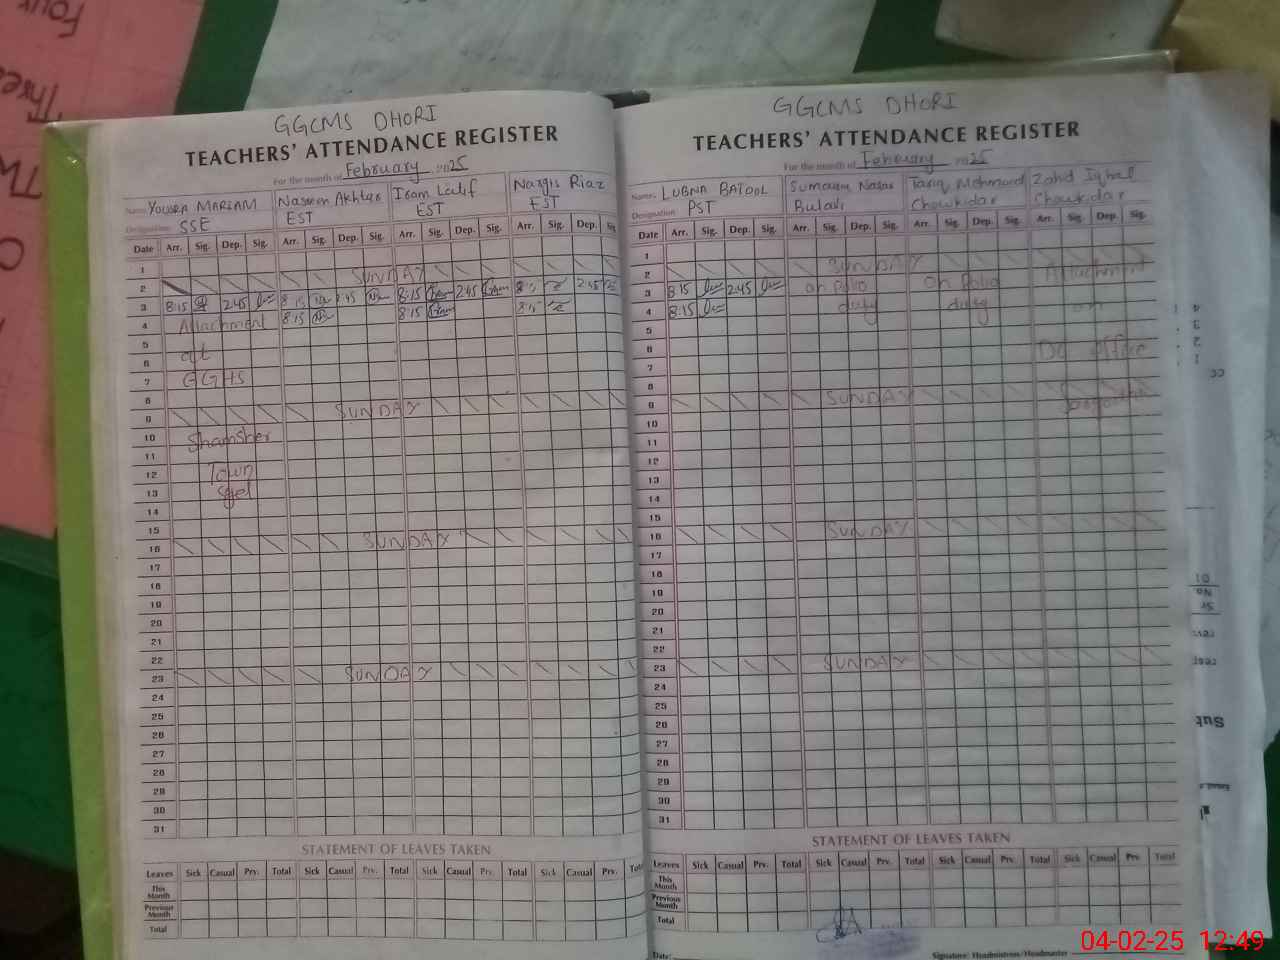 GGCMS DHORI
TEACHERS' ATTENDANCE REGISTER
For the month of February 2025
Name YOUSRA MARIAM Nasreen Akhtar Iram Latif Nargis Riaz
Designation SSE EST EST EST
Date Arr. Sig. Dep. Sig. Arr. Sig. Dep. Sig. Arr. Sig. Dep. Sig. Arr. Sig. Dep.
1
2 SUNDAY
3 8:15 2:45 8:15 2:45 8:15 2:45 8:15 2:45
4 Attachment 8:15 8:15 8:15
5
6 at
7 GGHS
8
9 SUNDAY
10 Shamsher
11
12 Town
13
14
15
16 SUNDAY
17
18
19
20
21
22
23 SUNDAY
24
25
26
27
28
29
30
31
STATEMENT OF LEAVES TAKEN
Leaves Sick Casual Prv. Total Sick Casual Prv. Total Sick Casual Prv. Total Sick Casual Prv.
This Month
Previous Month
Total
GGCMS DHORI
TEACHERS' ATTENDANCE REGISTER
For the month of February 2025
Name. LUBNA BATOOL Sumaira Tariq Mehmood Zahid Iqbal
Designation PST Chowkidar Chowkidar
Date Arr. Sig. Dep. Sig. Arr. Sig. Dep. Sig. Arr. Sig. Dep. Sig. Arr. Sig. Dep. Sig.
1
2 SUNDAY Attachment
3 8:15 2:45 on polio on Polio
4 8:15 duty duty on
5
6 office
7
8
9 SUNDAY
10
11
12
13
14
15
16 SUNDAY
17
18
19
20
21
22
23 SUNDAY
24
25
26
27
28
29
30
31
STATEMENT OF LEAVES TAKEN
Leaves Sick Casual Prv. Total Sick Casual Prv. Total Sick Casual Prv. Total Sick Casual Prv. Total
This Month
Previous Month
Total
Date: Signature: Headmistress/Headmaster
04-02-25 12:49